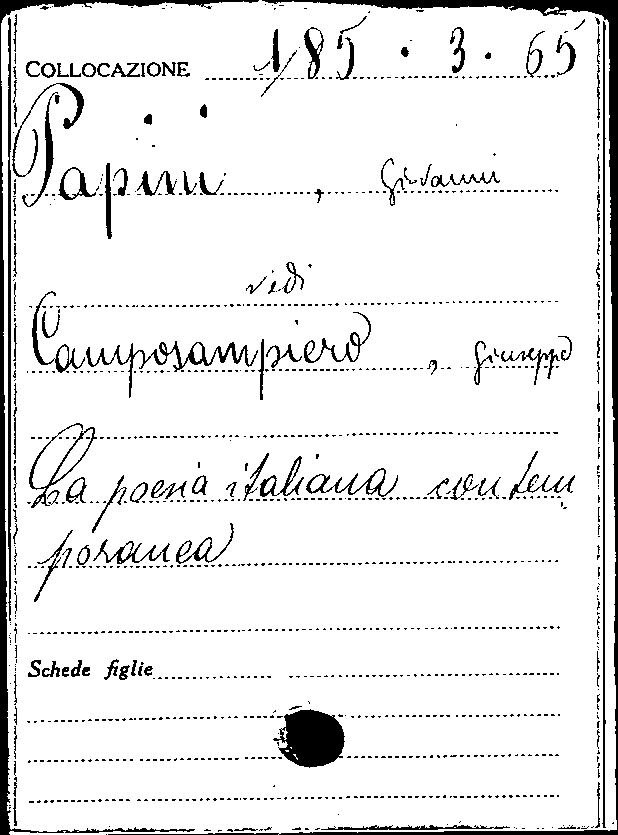 COLLOCAZIONE 185 · 3 · 65
Papini, Giovanni
vedi
Camposampiero, Giuseppe
La poesia italiana contem
poranea
Schede figlie